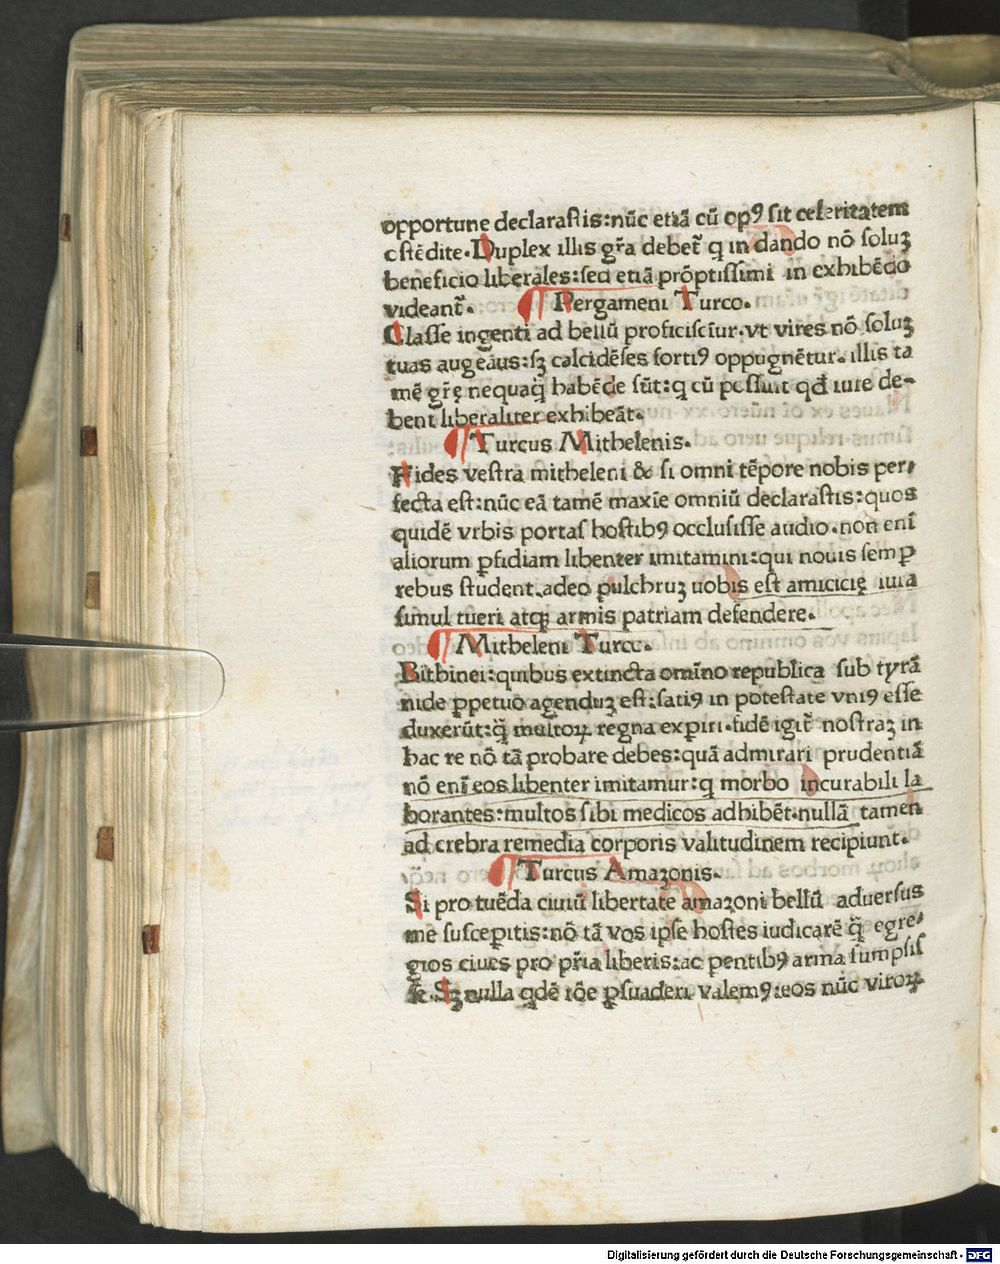 opportune declarastis:nūc etiā cū opꝰ sit celeritatem
ostēdite. Duplex illis gr̄a debet̄ q in dando nō soluꝫ
beneficio liberales:sed etiā prōptissimi in exhibēdo
videant̄.
¶ Pergameni Turco.
Classe ingenti ad bellū proficisciur.vt vires nō soluꝫ
tuas augeāus:sꝫ calcidēses fortiꝰ oppugnētur. illis ta
mē gr̄ę nequaq̄ habēde sūt:q cū possūit qd̄ iure de-
bent liberaliter exhibeāt.
¶ Turcus Mithelenis.
Fides vestra mitheleni & si omni tēpore nobis per-
fecta est:nūc eā tamē maxīe omniū declarastis:quos
quidē vrbis portas hostibꝰ occlusisse audio.non enī
aliorum ꝑfidiam libenter imitamini:qui nouis semꝑ
rebus student.adeo pulchruꝫ uobis est amicicię iura
simul tueri atqꝫ armis patriam defendere.
¶ Mitheleni Turco.
Bithinei:quibus extincta omīno republica sub tyrā
nide ꝑpetuo agenduꝫ est:satiꝰ in potestate vniꝰ esse
duxerūt:q̄ multoꝝ regna experiri.fidē igit̄ nostraꝫ in
hac re nō tā probare debes:quā admirari prudentiā
nō enī eos libenter imitamur:q morbo incurabili la
borantes:multos sibi medicos adhibēt.nullā tamen
ad crebra remedia corporis valitudinem recipiunt.
¶ Turcus Amaꝫonis.
Si pro tuēda ciuiū libertate amaꝫoni bellū aduersus
me suscepitis:nō tā vos ipse hostes iudicarē q̄ egre-
gios ciues pro pr̄ia liberis:ac pentibꝰ arma sumpsis
se. Sꝫ nulla qdē rōe ꝑsuaderi valemꝰ:eos nūc viroꝝ
Digitalisierung gefördert durch die Deutsche Forschungsgemeinschaft - DFG